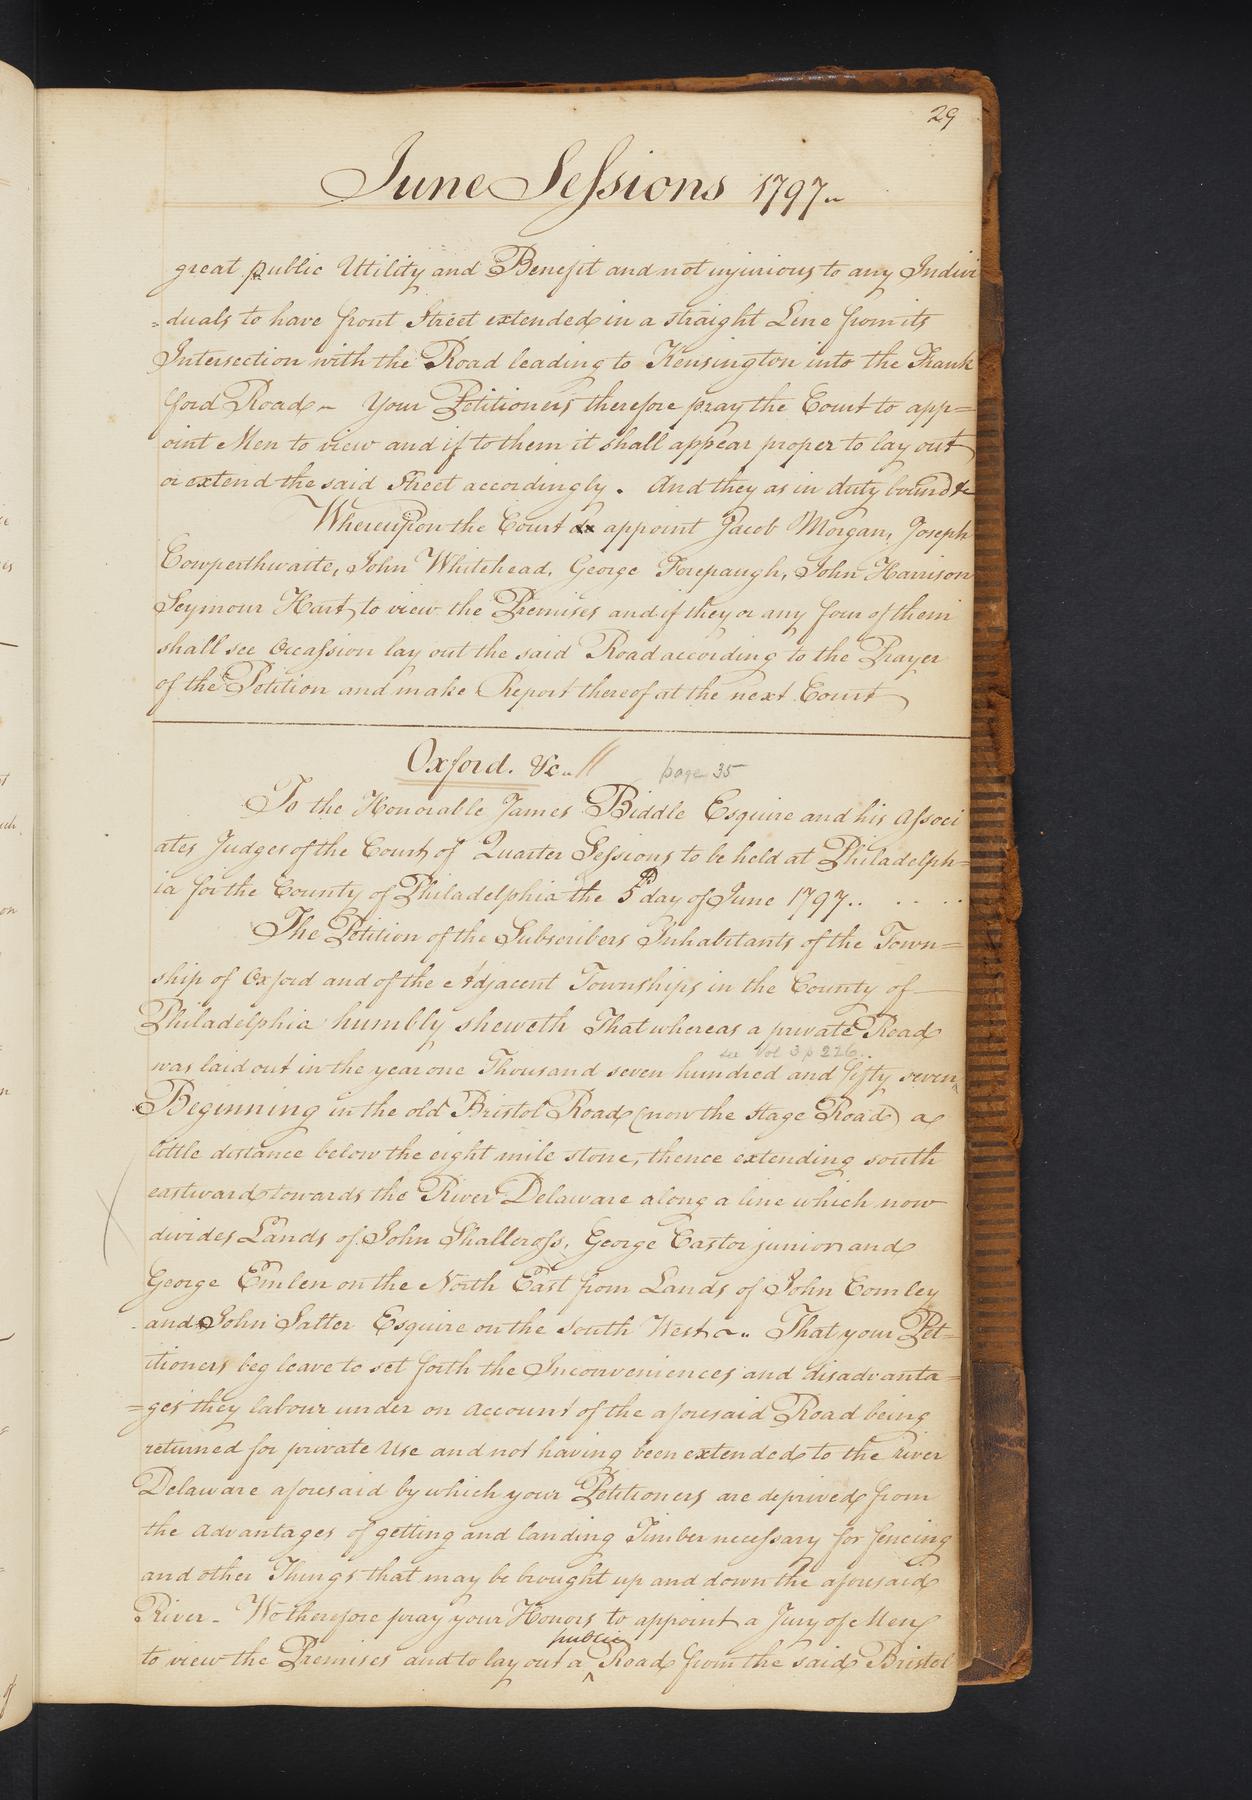 29
June Sessions 1797..
great public Utility and Benefit and not injurious to any Indivi
=duals to have front Street extended in a straight Line from its
Intersection with the Road leading to Kensington into the Frank
ford Road - Your Petitioners therefore pray the Court to app=
oint Men to view and if to them it shall appear proper to lay out
or extend the said Street accordingly. And they as in duty bound &c
Whereupon the Court do appoint Jacob Morgan, Joseph
Cowperthwaite, John Whitehead, George Forepaugh, John Harrison
Seymour Hart, to view the Premises and if they or any four of them
shall see Occassion lay out the said Road according to the Prayer
of the Petition and make Report thereof at the next Court
Oxford. &c.. //
page 35
To the Honorable James Biddle Esquire and his Associ
ates Judges of the Court of Quarter Sessions to be held at Philadelph=
ia for the County of Philadelphia the 5th day of June 1797.. . . . .
The Petition of the Subscribers Inhabitants of the Town=
ship of Oxford and of the Adjacent Townships in the County of
Philadelphia humbly sheweth That whereas a private Road
see Vol 3 p 226..
was laid out in the year one Thousand seven hundred and fifty seven
Beginning in the old Bristol Road (now the Stage Road) a
little distance below the eight mile stone, thence extending south
eastward towards the River Delaware along a line which now
divides Lands of John Shallcross, George Castor junior and
George Emlen on the North East from Lands of John Comley
and John Salter Esquire on the South West - .. That your Pet=
itioners beg leave to set forth the Inconveniences and disadvanta=
=ges they labour under on account of the aforesaid Road being
returned for private Use and not having been extended to the river
Delaware aforesaid by which your Petitioners are deprived from
the advantages of getting and landing Timber necessary for fencing
and other Things that may be brought up and down the aforesaid
River - We therefore pray your Honors to appoint a Jury of Men
public
to view the Premises and to lay out a ^ Road from the said Bristol